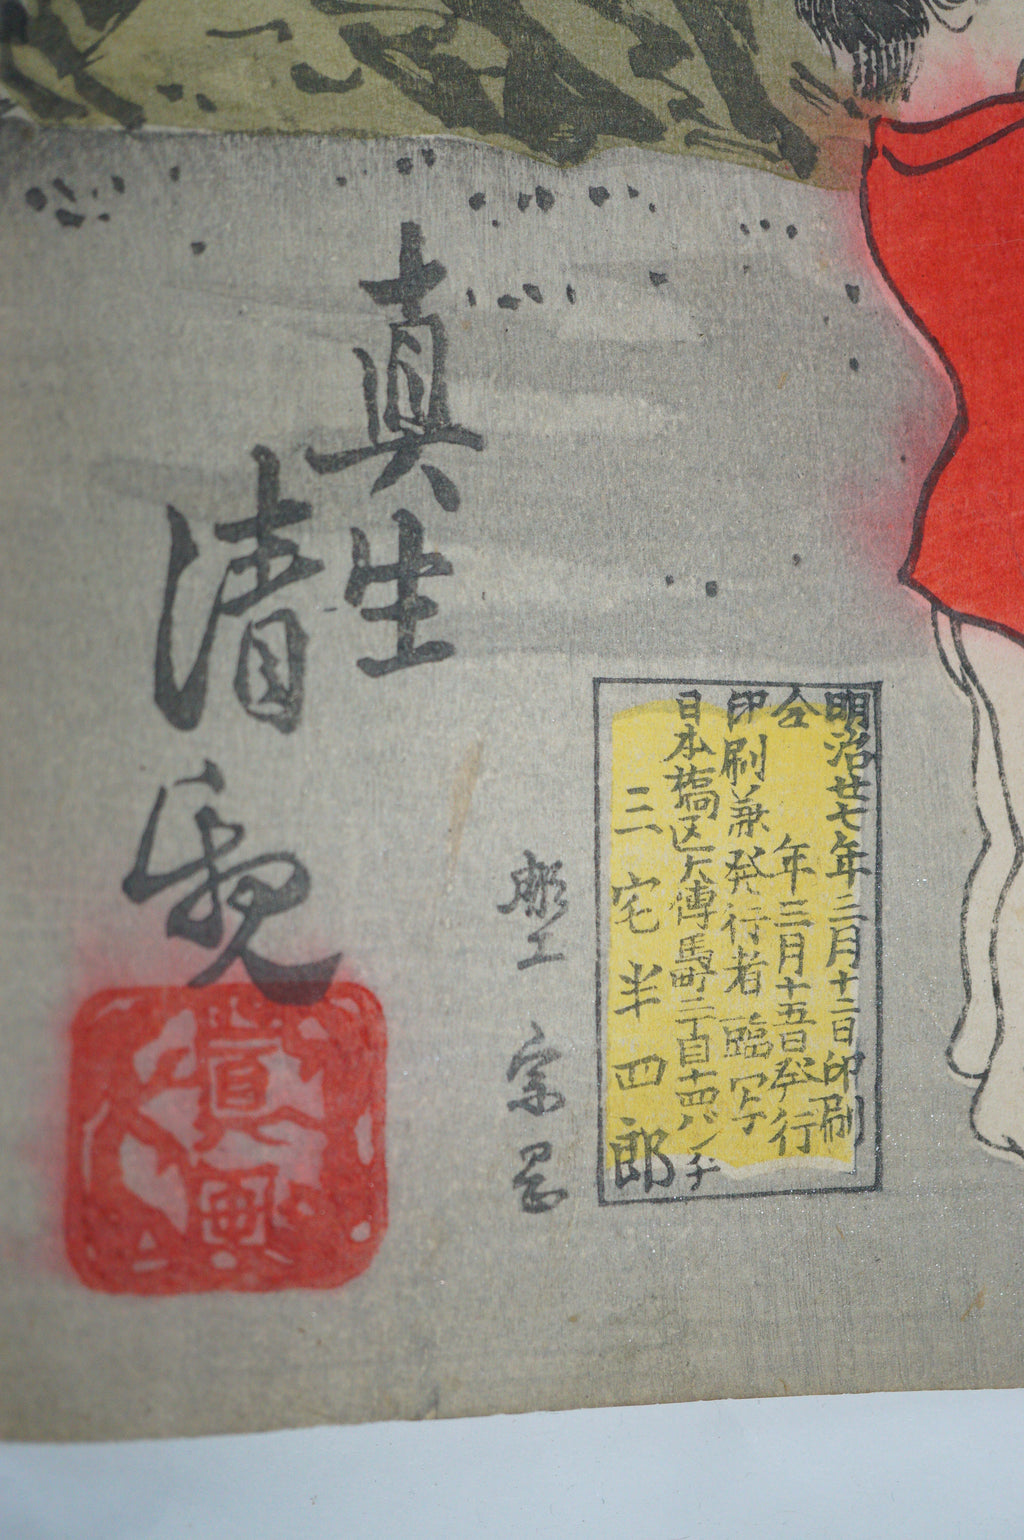 明治廿七年二月十二日印刷
仝 年三月十五日発行
印刷兼発行者 臨写
日本橋区大傳馬町二丁目十四バンチ
三宅半四郎
彫工 宗
真生
清親